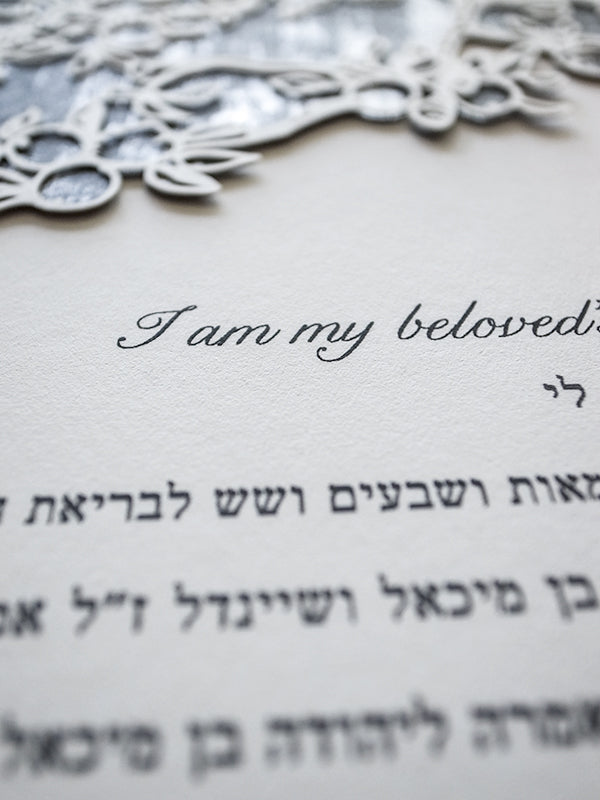 I am my beloved's
לי
מאות ושבעים ושש לבריאת
בן מיכאל ושיינדל ז״ל
אמרה ליהודה בן מיכאל